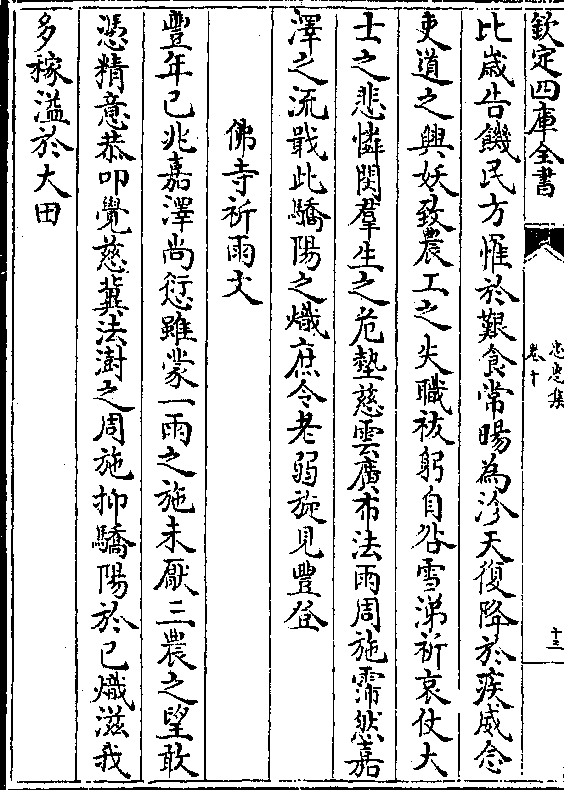 欽定四庫全書
忠惠集
卷十
十三
比歲告饑民方罹於艱食常暘為沴天復降於疾威念
吏道之興妖致農工之失職祓躬自咎雪涕祈哀仗大
士之悲憐閔羣生之危墊慈雲廣布法雨周施霈然嘉
澤之流戢此驕陽之熾庶令老弱旋見豐登
佛寺祈雨文
豐年已兆嘉澤尚愆雖蒙一雨之施未厭三農之望敢
憑精意恭叩覺慈冀法澍之周施抑驕陽於已熾滋我
多稼溢於大田